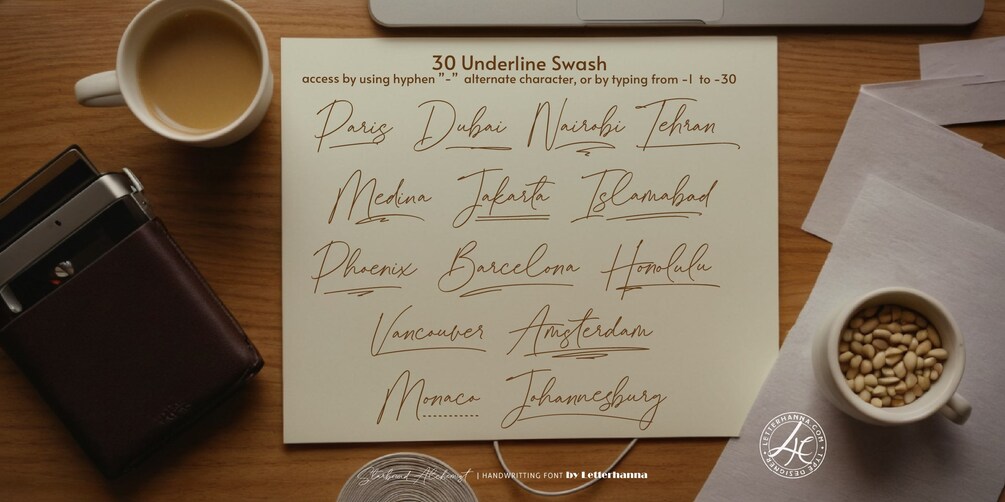 30 Underline Swash
access by using hyphen "-" alternate character, or by typing from -1 to -30
Paris Dubai Nairobi Tehran
Medina Jakarta Islamabad
Phoenix Barcelona Honolulu
Vancouver Amsterdam
Monaco Johannesburg
Starbrand Alchemist | HANDWRITTING FONT by Letterhanna
LETTERHANNA.COM • TYPE DESIGNER •